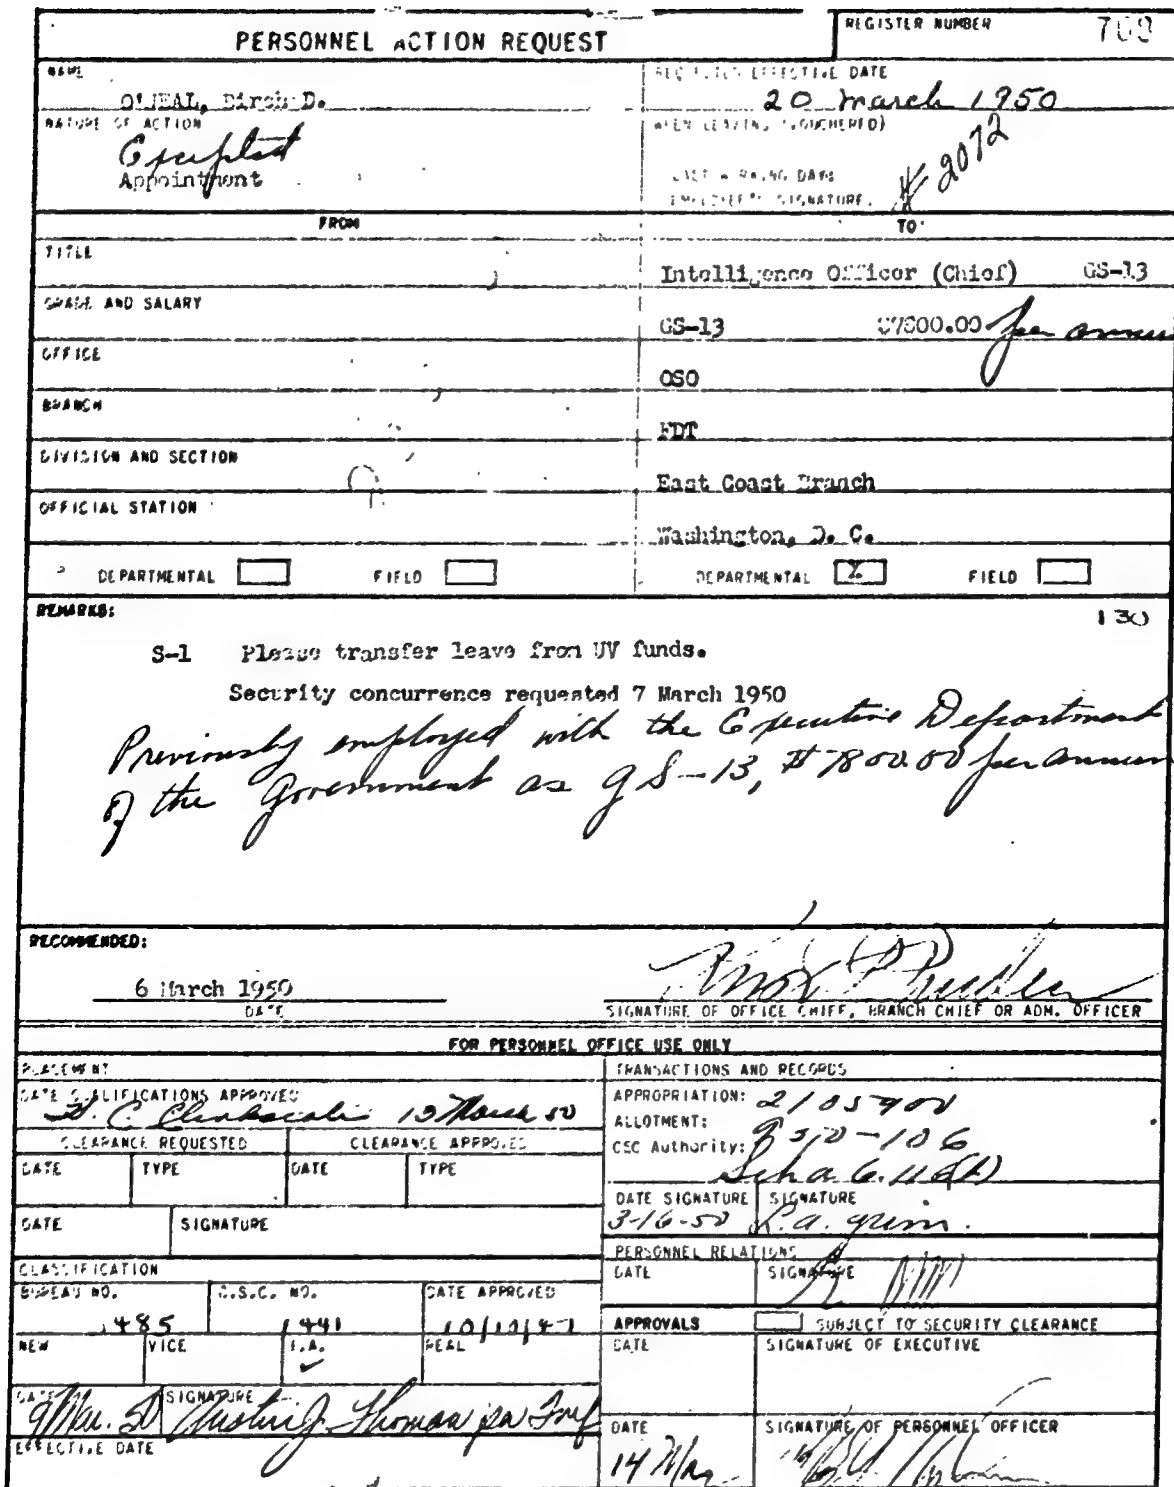 PERSONNEL ACTION REQUEST
REGISTER NUMBER
NAME
O'NEAL, Birch D.
REQUESTED EFFECTIVE DATE
20 March 1950
NATURE OF ACTION
Excepted
Appointment
WHEN LEAVING (VOUCHERED)
LAST WORKING DATE
EMPLOYEE'S SIGNATURE.
# 2072
FROM
TO
TITLE
Intelligence Officer (Chief) GS-13
GRADE AND SALARY
GS-13 $7800.00 per annum
OFFICE
OSO
BRANCH
FDT
DIVISION AND SECTION
East Coast Branch
OFFICIAL STATION
Washington, D. C.
DEPARTMENTAL FIELD
DEPARTMENTAL X FIELD
REMARKS:
130
S-1 Please transfer leave from UV funds.
Security concurrence requested 7 March 1950
Previously employed with the Executive Department
of the Government as GS-13, $7800.00 per annum
RECOMMENDED:
6 March 1950
DATE
SIGNATURE OF OFFICE CHIEF, BRANCH CHIEF OR ADM. OFFICER
FOR PERSONNEL OFFICE USE ONLY
PLACEMENT
DATE QUALIFICATIONS APPROVED
13 March 50
CLEARANCE REQUESTED
CLEARANCE APPROVED
DATE TYPE DATE TYPE
DATE SIGNATURE
CLASSIFICATION
BUREAU NO. C.S.C. NO. DATE APPROVED
485 1441
NEW VICE I.A. REAL
✓
DATE SIGNATURE
9 Mar. 50 Austin J. Thomas
EFFECTIVE DATE
TRANSACTIONS AND RECORDS
APPROPRIATION: 2105900
ALLOTMENT:
CSC Authority:
DATE SIGNATURE SIGNATURE
3-16-50
PERSONNEL RELATIONS
DATE SIGNATURE
APPROVALS SUBJECT TO SECURITY CLEARANCE
DATE SIGNATURE OF EXECUTIVE
DATE SIGNATURE OF PERSONNEL OFFICER
14 Mar